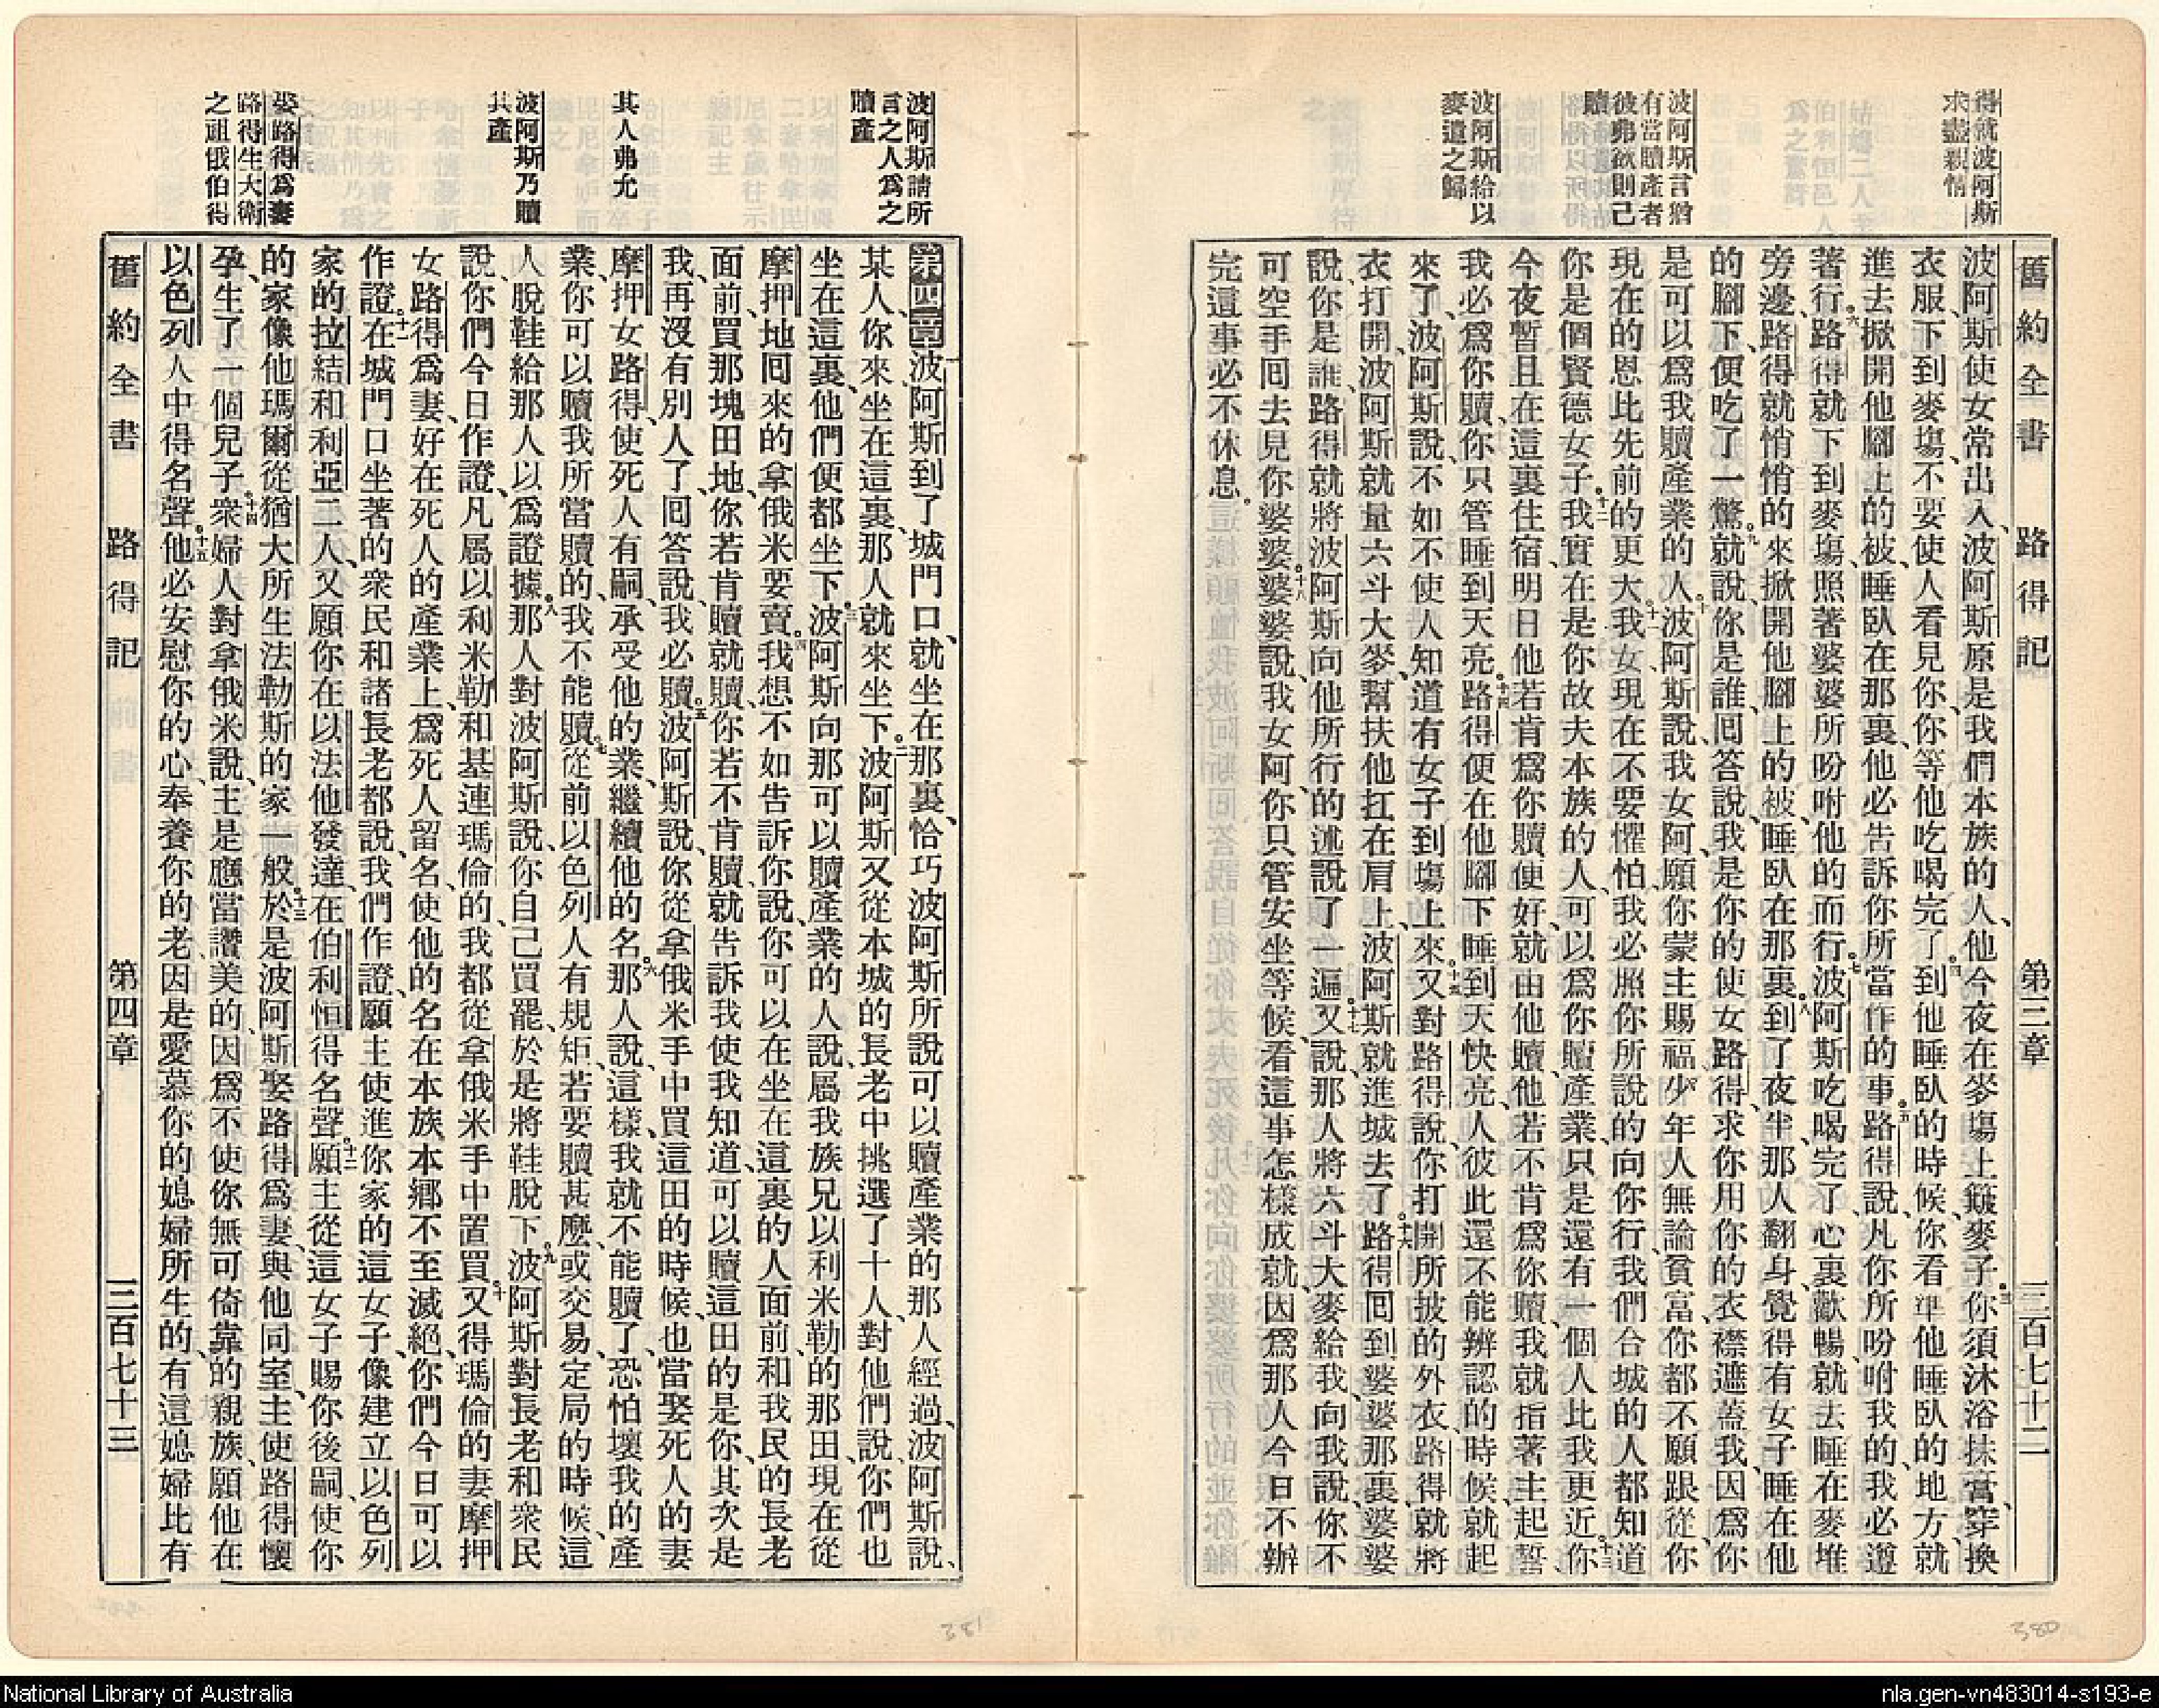 得就波阿斯
求盡親情
波阿斯言猶
有當贖產者
彼弗欲則己
贖
波阿斯給以
麥遣之歸
舊約全書 路得記 第三章 三百七十二
波阿斯使女常出入、波阿斯原是我們本族的人、他今夜在麥塲上簸麥子。三你須沐浴抹膏、穿換
衣服、下到麥塲、不要使人看見你、你等他吃喝完了。四到他睡臥的時候、你看準他睡臥的地方、就
進去掀開他腳上的被、睡臥在那裏、他必告訴你所當作的事。五路得說、凡你所吩咐我的、我必遵
著行。六路得就下到麥塲、照著婆婆所吩咐他的而行。七波阿斯吃喝完了、心裏歡暢、就去睡在麥堆
旁邊、路得就悄悄的來掀開他腳上的被、睡臥在那裏。八到了夜半、那人翻身、覺得有女子睡在他
的腳下、便吃了一驚。九就說、你是誰、囘答說、我是你的使女路得、求你用你的衣襟遮蓋我、因爲你
是可以爲我贖產業的人。十波阿斯說、我女阿、願你蒙主賜福、少年人無論貧富、你都不願跟從、你
現在的恩比先前的更大。十一我女、現在不要懼怕、我必照你所說的向你行、我們合城的人都知道
你是個賢德女子。十二我實在是你故夫本族的人、可以爲你贖產業、只是還有一個人比我更近。十三你
今夜暫且在這裏住宿、明日他若肯爲你贖便好、就由他贖、他若不肯爲你贖、我就指著主起誓、
我必爲你贖、你只管睡到天亮。十四路得便在他腳下睡到天快亮、人彼此還不能辨認的時候、就起
來了、波阿斯說、不如不使人知道有女子到塲上來。十五又對路得說、你打開所披的外衣、路得就將
衣打開、波阿斯就量六斗大麥、幫扶他扛在肩上、波阿斯就進城去了。十六路得囘到婆婆那裏、婆婆
說、你是誰、路得就將波阿斯向他所行的述說了一遍。十七又說、那人將六斗大麥給我、向我說、你不
可空手囘去見你婆婆。十八婆婆說、我女阿、你只管安坐等候、看這事怎樣成就、因爲那人今日不辦
完這事必不休息。
波阿斯請所
言之人爲之
贖產
其人弗允
波阿斯乃贖
其產
娶路得爲妻
路得生大衛
之祖俄伯得
第四章一波阿斯到了城門口、就坐在那裏、恰巧波阿斯所說可以贖產業的那人經過、波阿斯說、
某人、你來坐在這裏、那人就來坐下。二波阿斯又從本城的長老中挑選了十人、對他們說、你們也
坐在這裏、他們便都坐下。三波阿斯向那可以贖產業的人說、屬我族兄以利米勒的那田、現在從
摩押地囘來的拿俄米要賣。四我想不如告訴你說、你可以在坐在這裏的人面前、和我民的長老
面前、買那塊田地、你若肯贖就贖、你若不肯贖、就告訴我使我知道、可以贖這田的是你、其次是
我、再沒有別人了、囘答說、我必贖。五波阿斯說、你從拿俄米手中買這田的時候、也當娶死人的妻
摩押女路得、使死人有嗣、承受他的業、繼續他的名。六那人說、這樣、我就不能贖了、恐怕壞我的產
業、你可以贖我所當贖的、我不能贖。七從前以色列人有規矩、若要贖甚麼、或交易、定局的時候、這
人脫鞋給那人以爲證據。八那人對波阿斯說、你自己買罷、於是將鞋脫下。九波阿斯對長老和衆民
說、你們今日作證、凡屬以利米勒和基連瑪倫的、我都從拿俄米手中置買。十又得瑪倫的妻摩押
女路得爲妻、好在死人的產業上、爲死人留名、使他的名在本族本鄉不至滅絕、你們今日可以
作證。十一在城門口坐著的衆民和諸長老都說、我們作證、願主使進你家的這女子、像建立以色列
家的拉結和利亞二人、又願你在以法他發達、在伯利恒得名聲。十二願主從這女子賜你後嗣、使你
的家像他瑪爾從猶大所生法勒斯的家一般。十三於是波阿斯娶路得爲妻、與他同室、主使路得懷
孕、生了一個兒子。十四衆婦人對拿俄米說、主是應當讚美的、因爲不使你無可倚靠的親族、願他在
以色列人中得名聲。十五他必安慰你的心、奉養你的老、因是愛慕你的媳婦所生的、有這媳婦比有
舊約全書 路得記 第四章 三百七十三
381
380
National Library of Australia
nla.gen-vn483014-s193-e